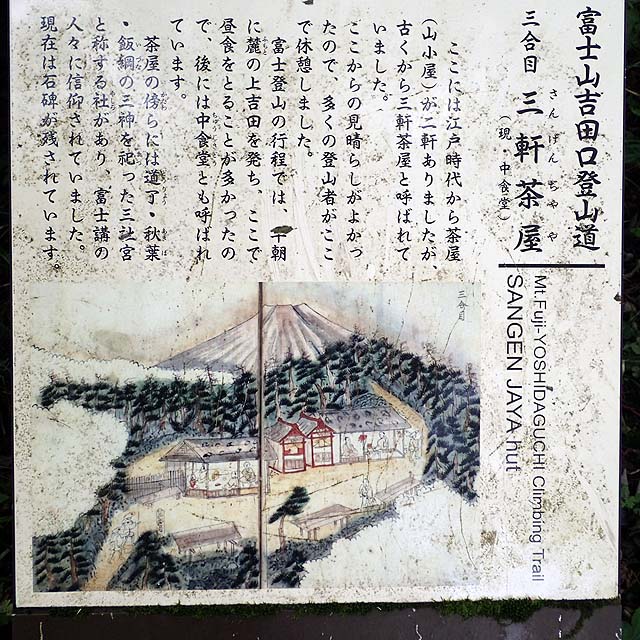 富士山吉田口登山道
三合目 三軒茶屋
さんげんぢゃや
(現・中食堂)
Mt.Fuji-YOSHIDAGUCHI Climbing Trail
SANGEN JAYA hut
ここには江戸時代から茶屋
(山小屋)が二軒ありましたが、
古くから三軒茶屋と呼ばれて
いました。
ここからの見晴らしがよかっ
たので、多くの登山者がここ
で休憩しました。
富士登山の行程では、早朝
に麓の上吉田を発ち、ここで
昼食をとることが多かったの
で、後には中食堂とも呼ばれ
ています。
茶屋の傍らには道了・秋葉
・飯綱の三神を祀った三社宮
と称する社があり、富士講の
人々に信仰されていました。
現在は石碑が残されています。
三合目